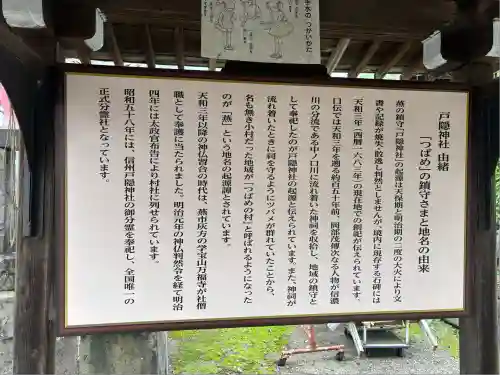 手水のつかいかた
戸隠神社 由緒
「つばめ」の鎮守さまと地名の由来
燕の鎮守「戸隠神社」の起源は天保期と明治期の二度の大火により文
書や記録が焼失・散逸し判然としませんが、境内に現存する石碑には
天和三年(西暦一六八三年)の現在地での創祀が伝えられています。
口伝では天和三年を遡る約百五十年前、岡部茂傳次なる人物が信濃
川の分流である中ノ口川に流れ着いた神祠を収拾し、地域の鎮守と
して奉祀したのが戸隠神社の起源と伝えられています。また、神祠が
流れ着いたときに祠を守るようにツバメが群れていたことから、
名も無き小村だった地域が「つばめの村」と呼ばれるようになった
のが「燕」という地名の起源譚とされています。
天和三年以降の神仏習合の時代は、燕市灰方の学宝山万福寺が社僧
職として奉護に当たられました。明治元年の神仏判然令を経て明治
四年には太政官布告により村社に列せられています。
昭和五十八年には、信州戸隠神社の御分霊を奉祀し、全国唯一の
正式分霊社となっています。